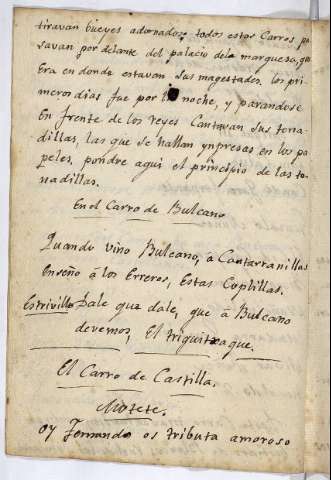 tiravan bueyes adornados, todos estos Carros pa
savan por delante del palacio dela marquesa, que
Era en donde estavan sus magestades. los pri
meros dias fue por la noche, y parandose
En frente de los reyes Cantavan sus tona
dillas, las que se hallan ynpresas en los pa
peles, pondre aqui el principio de las to
nadillas.
En el Carro de Bulcano
Quando vino Bulcano, a Cantarranillas
Enseño â los Erreros, Estas Coplillas.
Estrivillo Dale que dale, que â Bulcano
devemos, El triquitraque.
El Carro de Castilla.
Motete.
oy Fernando os tributa amoroso